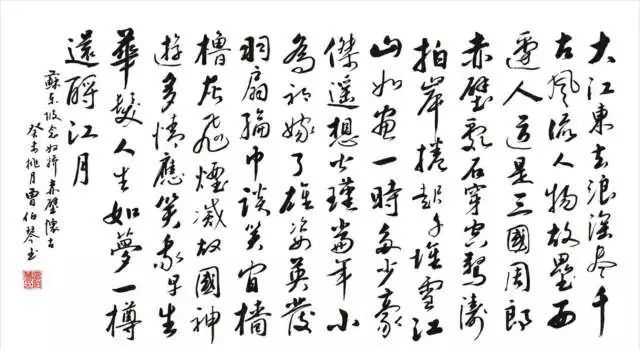 大江東去浪淘盡千
古風流人物故壘西
邊人道是三國周郎
赤壁亂石穿空驚濤
拍岸捲起千堆雪江
山如畫一時多少豪
傑遙想公瑾當年小
喬初嫁了雄姿英發
羽扇綸巾談笑間檣
櫓灰飛煙滅故國神
遊多情應笑我早生
華髮人生如夢一樽
還酹江月
蘇東坡念奴嬌赤壁懷古
癸未桃月曹伯琴書